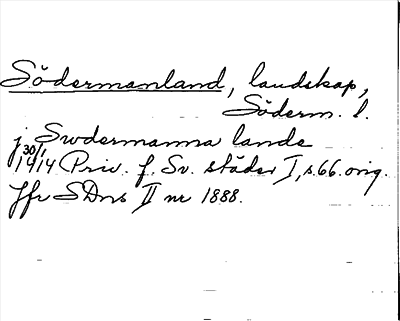 Södermanland, landskap,
Söderm. l.
j Swdermanna lande
30/1 1414 Priv. f. Sv. städer I, s. 66. orig.
Jfr SDns II nr 1888.